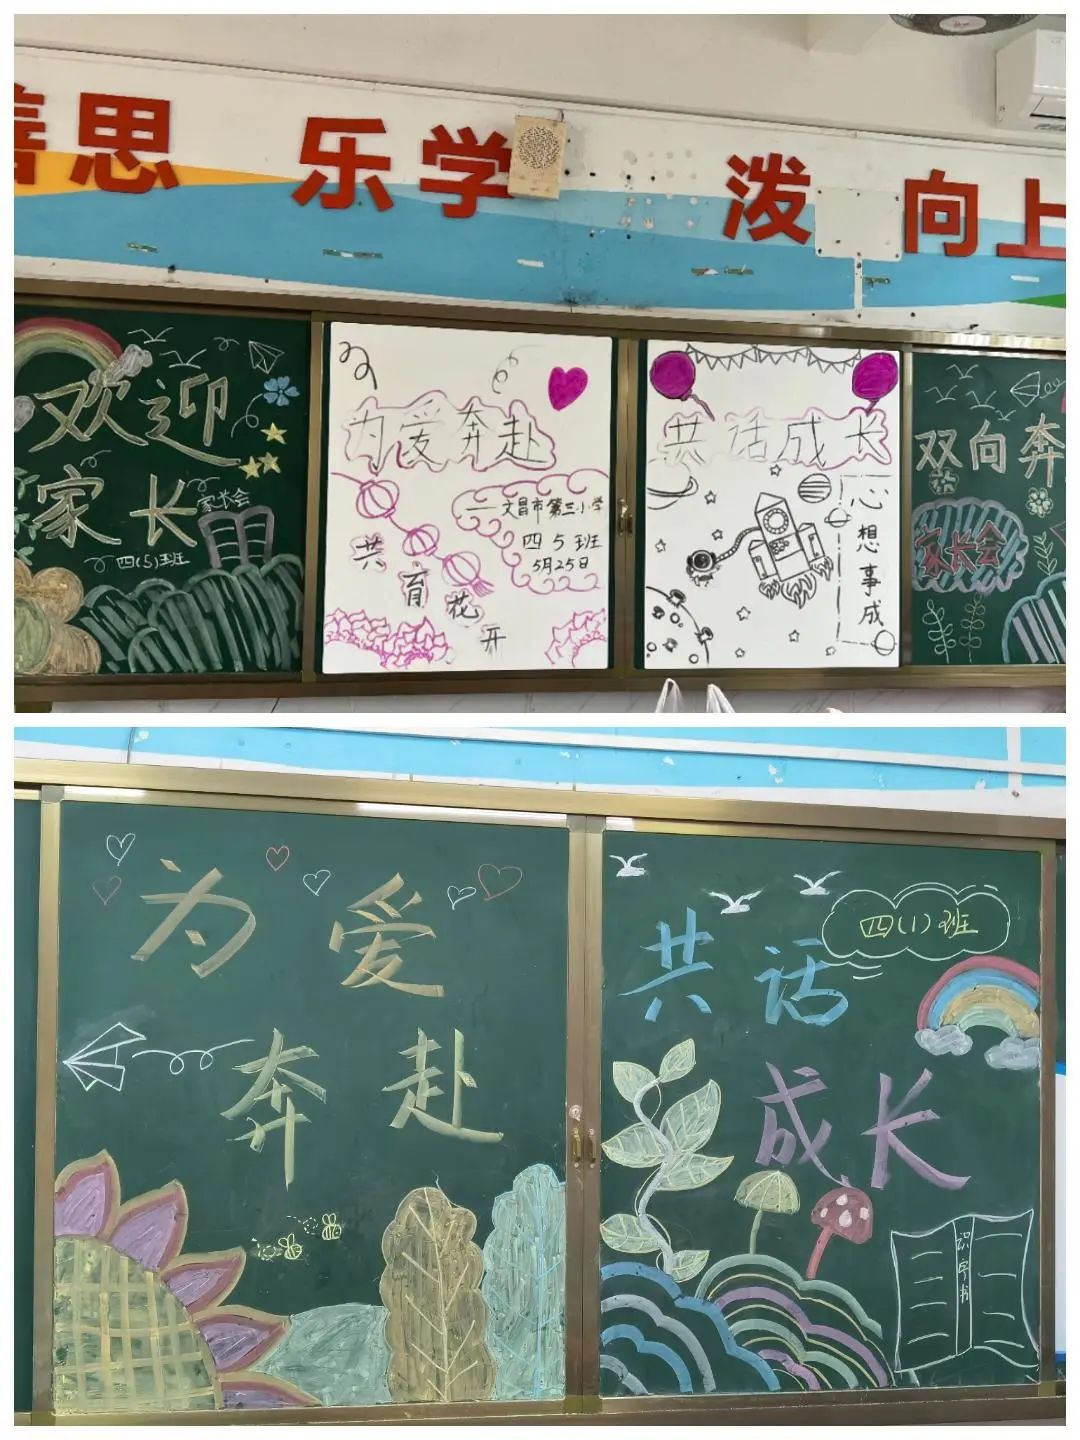 善思 乐学 活泼 向上
欢迎
家长
家长会
四(5)班
为爱奔赴
——文昌市第三小学
四5班
5月25日
共育花开
共话成长
心想事成
双向奔
家长会
为爱
奔赴
四(1)班
共话
成长
识字书